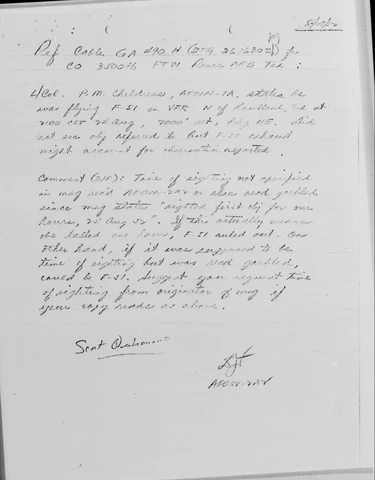 Ref Cable GA 490 H (DTG 261630Z) fr
CO 3500th PTW Reese AFB Tex:
L/Col. P.M. Childress, AFOIN-1A, states he
was flying F-51 on VFR N of Lubbock, Tex at
2100 CST 25 Aug, 7000' alt, hdg NE. Did
not see obj referred to but F-51 exhaust
might account for observation reported.
Comment (): Time of sighting not specified
in msg rec'd AFOIN-2A2 or else rec'd garbled
since msg states "sighted first obj for one
hours, 25 Aug 52". If this actually means
obs lasted one hour, F-51 ruled out. On
other hand, if it was supposed to be
time of sighting but was rec'd garbled,
could be F-51. Suggest you request time
of sighting from originator of msg if
yours copy reads as above.
Sent
AFOIN-2A2